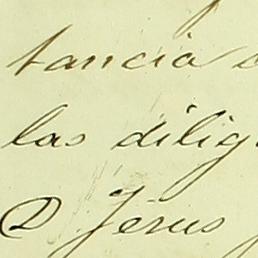 tancia
las dilig
D Jesus